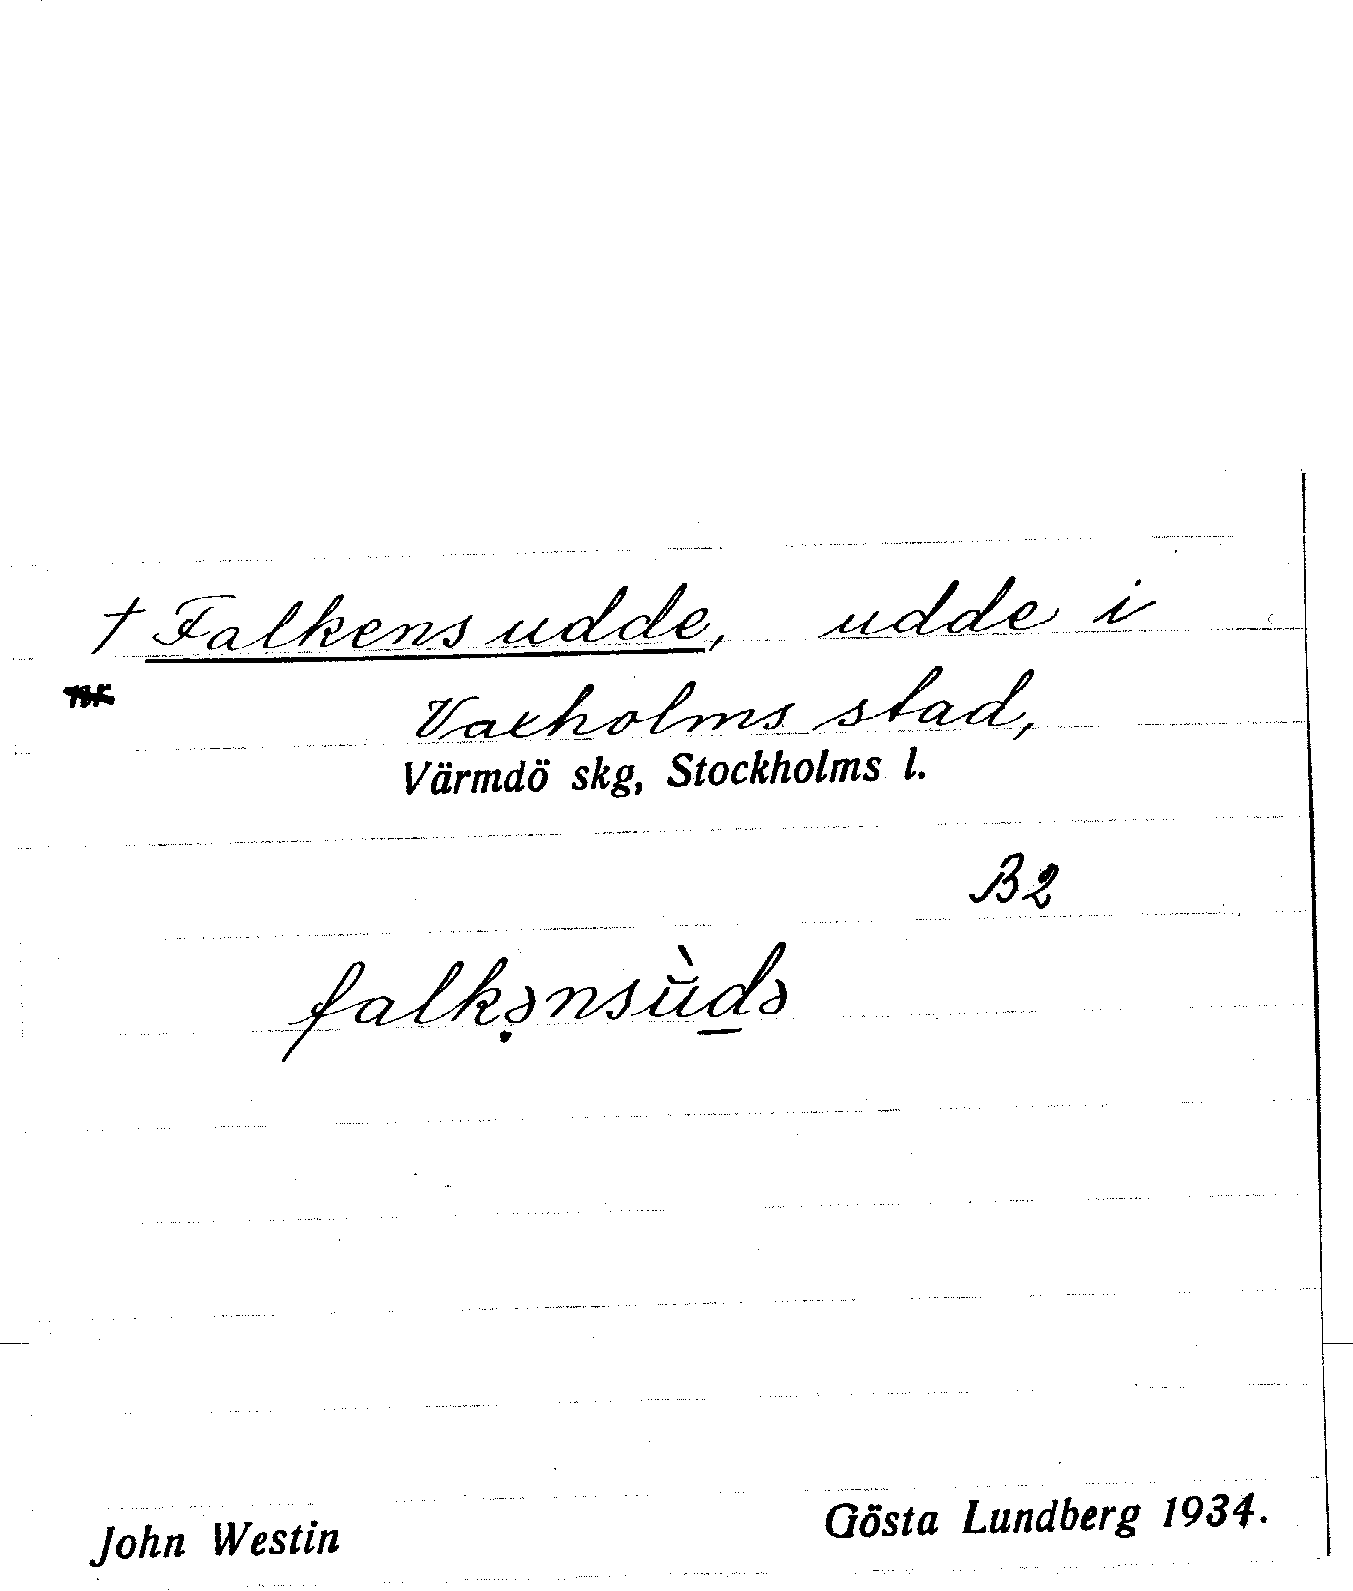 † Falkens udde, udde i
Vaxholms stad,
Värmdö skg, Stockholms l.
B2
falkə̣nsùd̲ə
John Westin
Gösta Lundberg 1934.